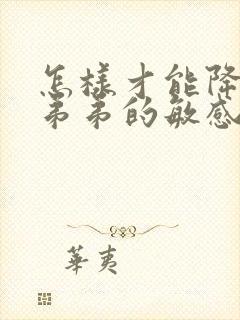 怎樣才能降
弟弟的敏感
華夷